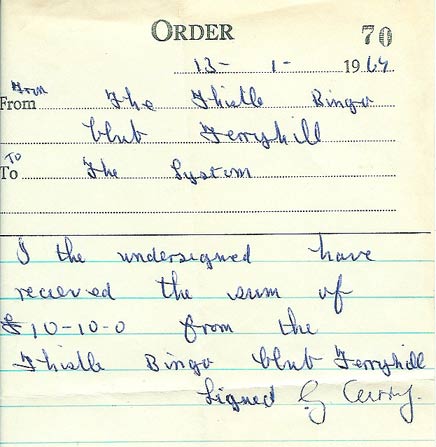 ORDER 70
13- 1- 1964
From
From The Thistle Bingo
Club Ferryhill
To
To The System
I the undersigned have
recieved the sum of
£10-10-0 from the
Thistle Bingo Club Ferryhill
Signed G Curry.